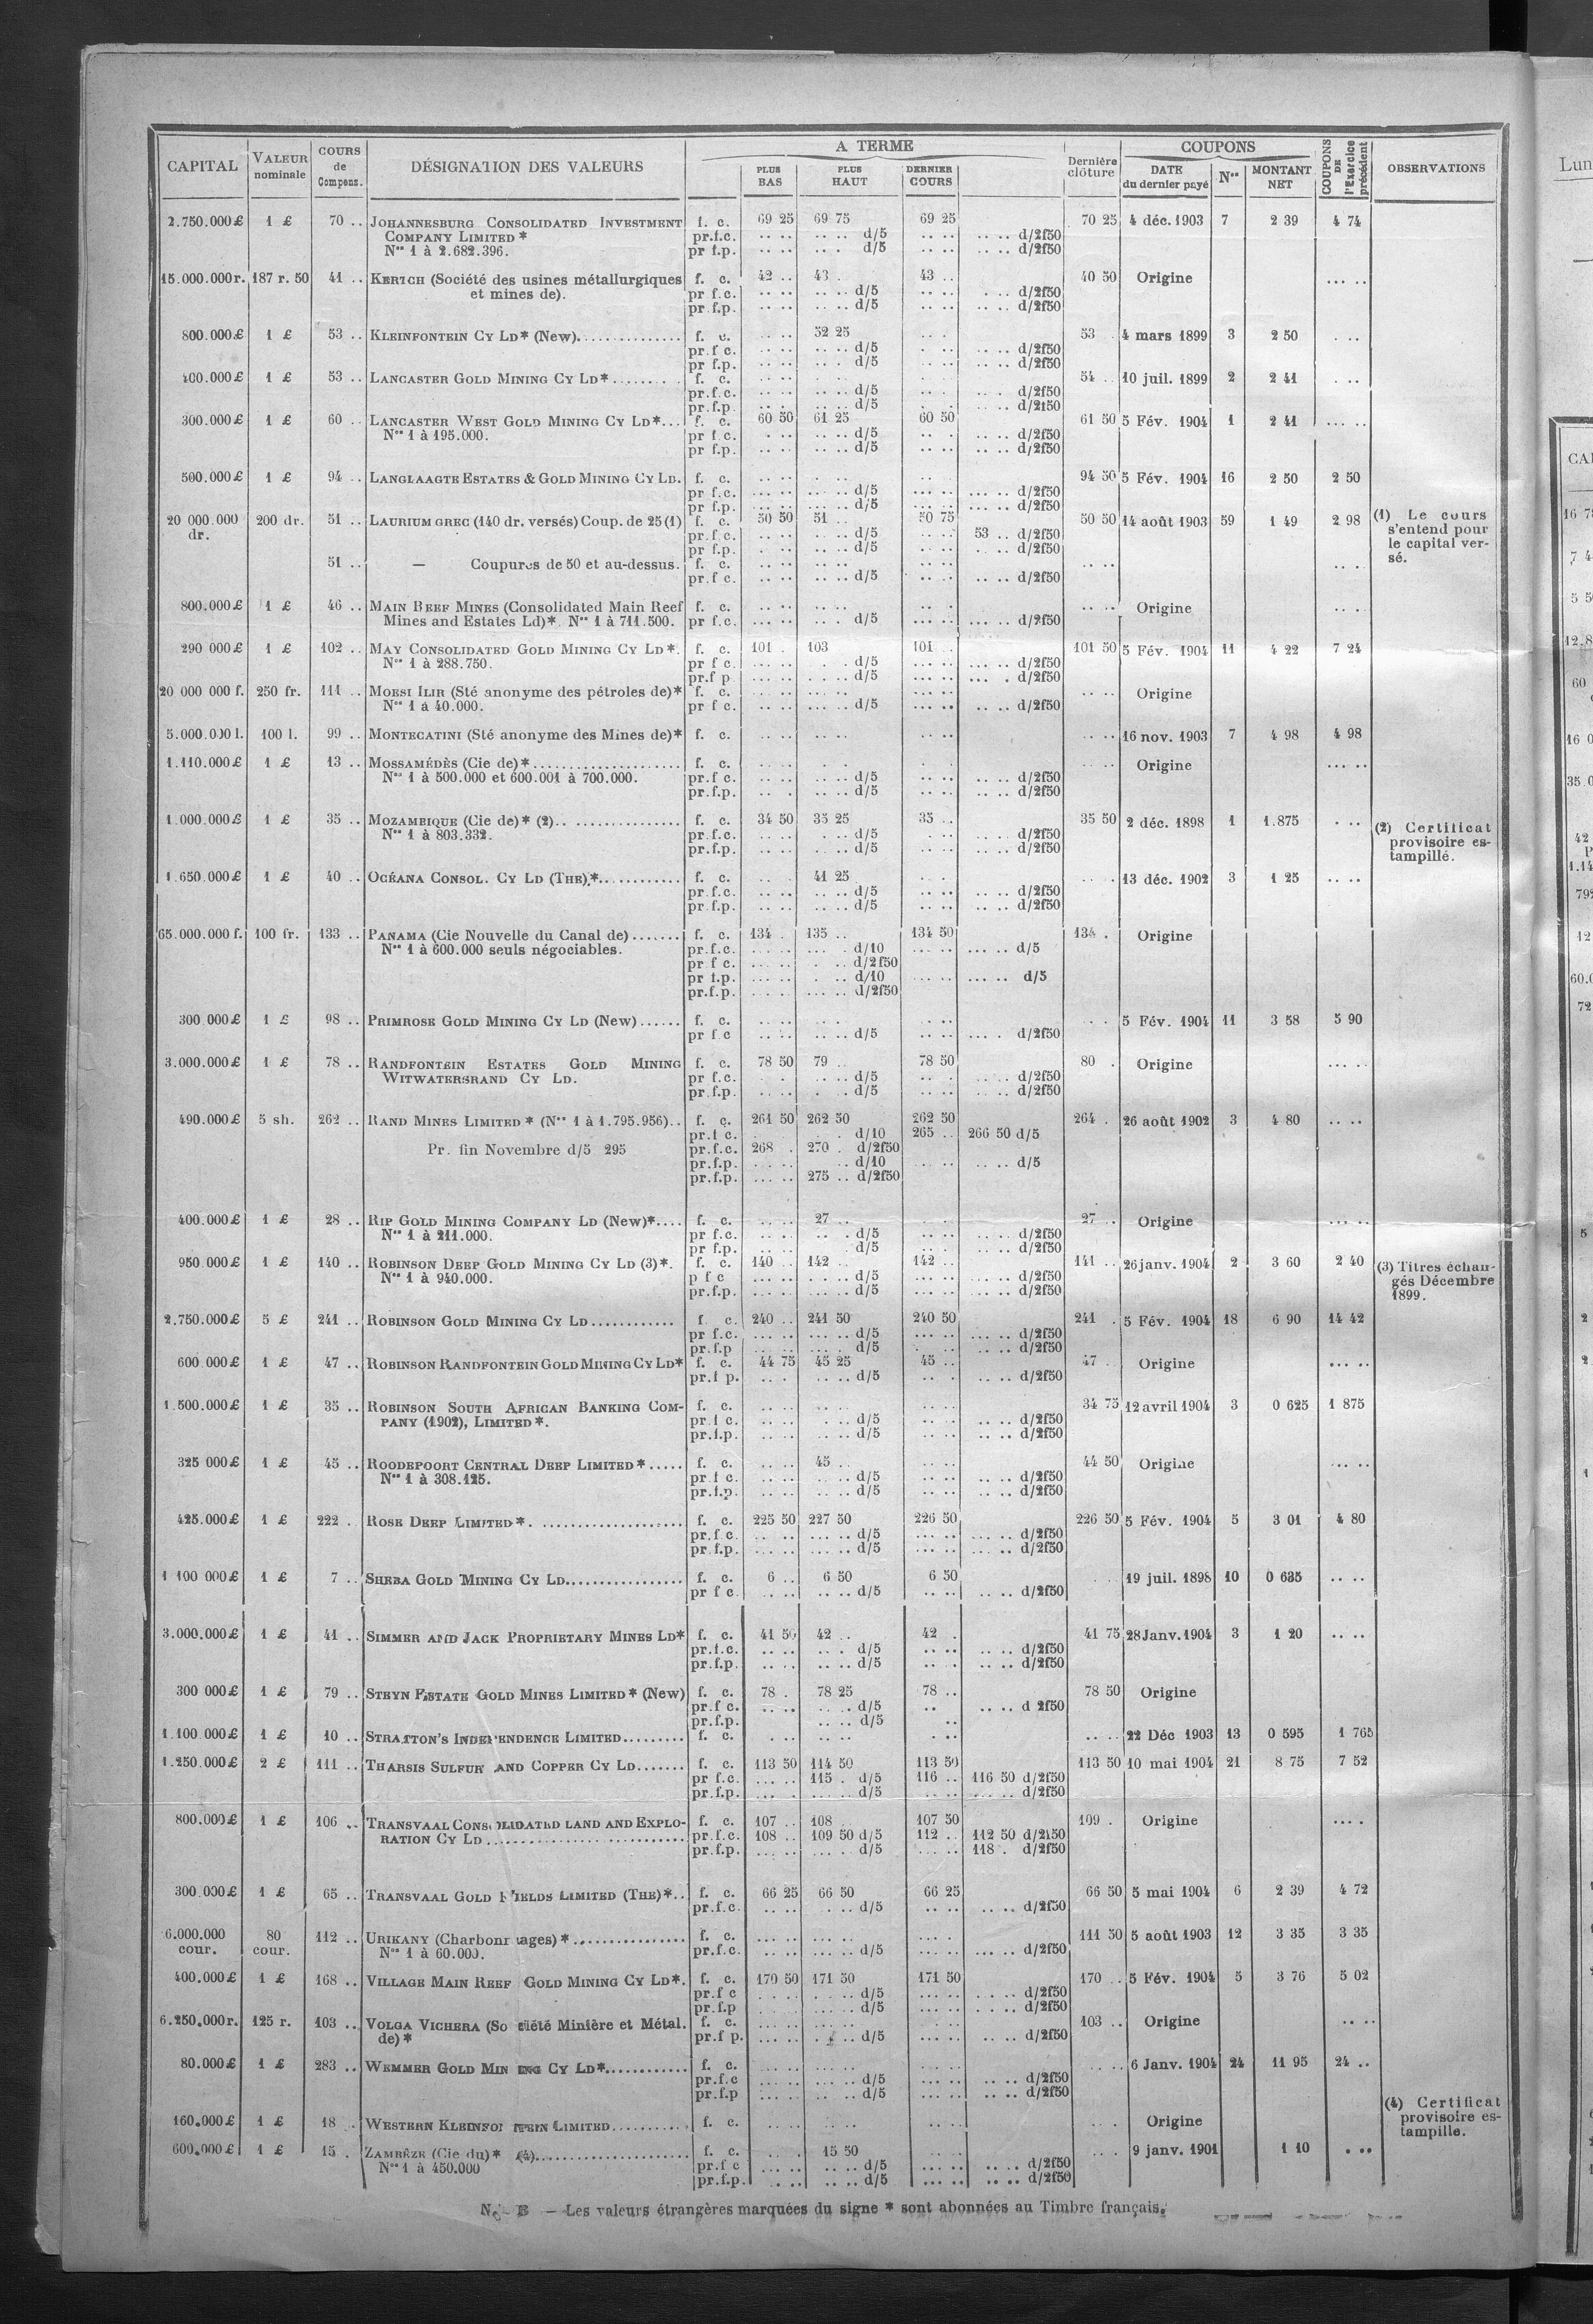 CAPITAL VALEUR nominale COURS de Compens. DÉSIGNATION DES VALEURS A TERME PLUS BAS PLUS HAUT DERNIER COURS Dernière clôture COUPONS DATE du dernier payé Nos MONTANT NET COUPONS DE l'Exercice précédent OBSERVATIONS
2.750.000£ 1 £ 70 .. JOHANNESBURG CONSOLIDATED INVESTMENT f. c. 69 25 69 75 69 25 70 25 4 déc. 1903 7 2 39 4 74
COMPANY LIMITED * pr.f.c. d/5 d/2f50
Nos 1 à 2.682.396. pr f.p. d/5 d/2f50
15.000.000r. 187 r. 50 41 .. KERTCH (Société des usines métallurgiques f. c. 42 .. 43 . 43 .. 40 50 Origine
et mines de). pr f.c. d/5 d/2f50
pr.f.p. d/5 d/2f50
800.000£ 1 £ 53 .. KLEINFONTEIN CY LD* (New) f. c. 52 25 53 . 4 mars 1899 3 2 50
pr.f c. d/5 d/2f50
pr f.p. d/5 d/2f50
400.000£ 1 £ 53 .. LANCASTER GOLD MINING CY LD* f. c. 54 .. 10 juil. 1899 2 2 41
pr.f.c. d/5 d/2f50
pr.f.p d/5 d/2f50
300.000£ 1 £ 60 .. LANCASTER WEST GOLD MINING CY LD*... f. c. 60 50 61 25 60 50 61 50 5 Fév. 1904 1 2 41
Nos 1 à 195.000. pr f.c. d/5 d/2f50
pr f.p. d/5 d/2f50
500.000£ 1 £ 94 .. LANGLAAGTE ESTATES & GOLD MINING CY LD. f. c. 94 50 5 Fév. 1904 16 2 50 2 50
pr f.c. d/5 d/2f50
pr f.p. d/5 d/2f50
20 000.000 200 dr. 51 .. LAURIUM GREC (140 dr. versés) Coup. de 25 (1) f. c. 50 50 51 .. 50 75 50 50 14 août 1903 59 1 49 2 98 (1) Le cours
dr. pr.f.c. d/5 53 .. d/2f50 s'entend pour
pr f.p. d/5 d/2f50 le capital ver-
51 .. — Coupures de 50 et au-dessus. f. c. sé.
pr.f c. d/5 d/2f50
800.000£ 1 £ 46 .. MAIN REEF MINES (Consolidated Main Reef f. c. Origine
Mines and Estates Ld)* Nos 1 à 711.500. pr f.c. d/5 d/2f50
290 000£ 1 £ 102 .. MAY CONSOLIDATED GOLD MINING CY LD*. f. c. 101 . 103 101 .. 101 50 5 Fév. 1904 11 4 22 7 24
Nos 1 à 288.750. pr f c. d/5 d/2f50
pr.f p d/5 d/2f50
20 000 000 f. 250 fr. 111 .. MOESI ILIR (Sté anonyme des pétroles de)* f. c. Origine
Nos 1 à 40.000. pr f c. d/5 d/2f50
5.000.000 l. 100 l. 99 .. MONTECATINI (Sté anonyme des Mines de)* f. c. 16 nov. 1903 7 4 98 4 98
1.110.000£ 1 £ 13 .. MOSSAMÉDÈS (Cie de)* f. c. Origine
Nos 1 à 500.000 et 600.001 à 700.000. pr.f c. d/5 d/2f50
pr.f.p. d/5 d/2f50
1.000.000£ 1 £ 35 .. MOZAMBIQUE (Cie de)* (2) f. c. 34 50 35 25 35 .. 35 50 2 déc. 1898 1 1.875 (2) Certificat
Nos 1 à 803.332. pr.f.c. d/5 d/2f50 provisoire es-
pr.f.p. d/5 d/2f50 tampillé.
1.650.000£ 1 £ 40 .. OCÉANA CONSOL. CY LD (THE)* f. c. 41 25 13 déc. 1902 3 1 25
pr.f.c. d/5 d/2f50
pr.f.p. d/5 d/2f50
65.000.000 f. 100 fr. 133 .. PANAMA (Cie Nouvelle du Canal de) f. c. 134 . 135 .. 134 50 134 . Origine
Nos 1 à 600.000 seuls négociables. pr.f.c. d/10 d/5
pr f c. d/2f50
pr f.p. d/10 d/5
pr.f.p. d/2f50
300 000£ 1 £ 98 .. PRIMROSE GOLD MINING CY LD (New) f. c. 5 Fév. 1904 11 3 58 5 90
pr f c d/5 d/2f50
3.000.000£ 1 £ 78 .. RANDFONTEIN ESTATES GOLD MINING f. c. 78 50 79 .. 78 50 80 . Origine
WITWATERSRAND CY LD. pr f.c. d/5 d/2f50
pr.f.p. d/5 d/2f50
490.000£ 5 sh. 262 .. RAND MINES LIMITED * (Nos 1 à 1.795.956) f. c. 261 50 262 50 262 50 264 . 26 août 1902 3 4 80
pr.f c. d/10 265 .. 266 50 d/5
Pr. fin Novembre d/5 295 pr.f.c. 268 . 270 . d/2f50
pr.f.p. d/10 d/5
pr.f.p. 275 .. d/2f50
400.000£ 1 £ 28 .. RIP GOLD MINING COMPANY LD (New)* f. c. 27 .. 27 .. Origine
Nos 1 à 211.000. pr f.c. d/5 d/2f50
pr f.p. d/5 d/2f50
950.000£ 1 £ 140 .. ROBINSON DEEP GOLD MINING CY LD (3)*. f. c. 140 .. 142 .. 142 .. 141 .. 26 janv. 1904 2 3 60 2 40 (3) Titres échan-
Nos 1 à 940.000. p f c d/5 d/2f50 gés Décembre
pr.f.p. d/5 d/2f50 1899.
2.750.000£ 5 £ 241 .. ROBINSON GOLD MINING CY LD f. c. 240 .. 241 50 240 50 241 . 5 Fév. 1904 18 6 90 14 42
pr f.c. d/5 d/2f50
pr.f.p d/5 d/2f50
600.000£ 1 £ 47 .. ROBINSON RANDFONTEIN GOLD MINING CY LD* f. c. 44 75 45 25 45 .. 47 . Origine
pr.f p. d/5 d/2f50
1.500.000£ 1 £ 35 .. ROBINSON SOUTH AFRICAN BANKING COM- f. c. 34 75 12 avril 1904 3 0 625 1 875
PANY (1902), LIMITED *. pr.f c. d/5 d/2f50
pr.f.p. d/5 d/2f50
325 000£ 1 £ 45 .. ROODEPOORT CENTRAL DEEP LIMITED * f. c. 45 .. 44 50 Origine
Nos 1 à 308.125. pr.f c. d/5 d/2f50
pr.f.p. d/5 d/2f50
425.000£ 1 £ 222 . ROSE DEEP LIMITED *. f. c. 225 50 227 50 226 50 226 50 5 Fév. 1904 5 3 01 4 80
pr.f.c. d/5 d/2f50
pr.f.p. d/5 d/2f50
1 100 000£ 1 £ 7 .. SHEBA GOLD MINING CY LD f. c. 6 .. 6 50 6 50 19 juil. 1898 10 0 635
pr f c. d/5 d/2f50
3.000.000£ 1 £ 41 .. SIMMER AND JACK PROPRIETARY MINES LD* f. c. 41 50 42 .. 42 . 41 75 28 Janv. 1904 3 1 20
pr.f.c. d/5 d/2f50
pr.f.p. d/5 d/2f50
300 000£ 1 £ 79 .. STEYN ESTATE GOLD MINES LIMITED * (New) f. c. 78 . 78 25 78 .. 78 50 Origine
pr.f c. d/5 d 2f50
pr.f.p. d/5
1.100.000£ 1 £ 10 .. STRATTON'S INDEPENDENCE LIMITED f. c. 22 Déc 1903 13 0 595 1 765
1.250.000£ 2 £ 111 .. THARSIS SULFUR AND COPPER CY LD f. c. 113 50 114 50 113 50 113 50 10 mai 1904 21 8 75 7 52
pr f.c. 115 . d/5 116 .. 116 50 d/2f50
pr.f.p. d/5 d/2f50
800.000£ 1 £ 106 .. TRANSVAAL CONSOLIDATED LAND AND EXPLO- f. c. 107 .. 108 .. 107 50 109 . Origine
RATION CY LD pr.f.c. 108 .. 109 50 d/5 112 .. 112 50 d/2f50
pr.f.p. d/5 118 . d/2f50
300.000£ 1 £ 65 .. TRANSVAAL GOLD FIELDS LIMITED (THE)*.. f. c. 66 25 66 50 66 25 66 50 5 mai 1904 6 2 39 4 72
pr.f.c. d/5 d/2f50
6.000.000 80 112 .. URIKANY (Charbonnages) * f. c. 111 50 5 août 1903 12 3 35 3 35
cour. cour. Nos 1 à 60.000. pr.f.c. d/5 d/2f50
400.000£ 1 £ 168 .. VILLAGE MAIN REEF GOLD MINING CY LD*. f. c. 170 50 171 50 171 50 170 .. 5 Fév. 1904 5 3 76 5 02
pr.f c d/5 d/2f50
pr.f.p d/5 d/2f50
6.250.000r. 125 r. 103 .. VOLGA VICHERA (Société Minière et Métal. f. c. 103 .. Origine
de)* pr.f p. d/5 d/2f50
80.000£ 1 £ 283 .. WEMMER GOLD MINING CY LD* f. c. 6 Janv. 1904 24 11 95 24 ..
pr.f.c d/5 d/2f50
pr.f.p d/5 d/2f50
160.000£ 1 £ 18 . WESTERN KLEINFONTEIN LIMITED f. c. Origine (4) Certificat
provisoire es-
tampille.
600.000£ 1 £ 15 . ZAMBÈZE (Cie du)* (4) f. c. 15 50 9 janv. 1901 1 10
Nos 1 à 450.000 pr.f c d/5 d/2f50
pr.f.p. d/5 d/2f50
N. B — Les valeurs étrangères marquées du signe * sont abonnées au Timbre français.
Lun